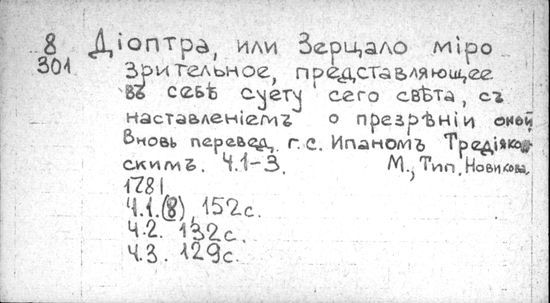 8 Дiоптра, или Зерцало мiро
301 зрительное, представляющее
въ себѣ суету сего свѣта, съ
наставленiемъ о презрѣнiи оной
Вновь перевед. г. с. Ипаномъ Тредiяков
скимъ. Ч.1-3. М., Тип. Новикова.
1781
Ч.1. (8), 152с.
Ч.2. 132с.
Ч.3. 129с.